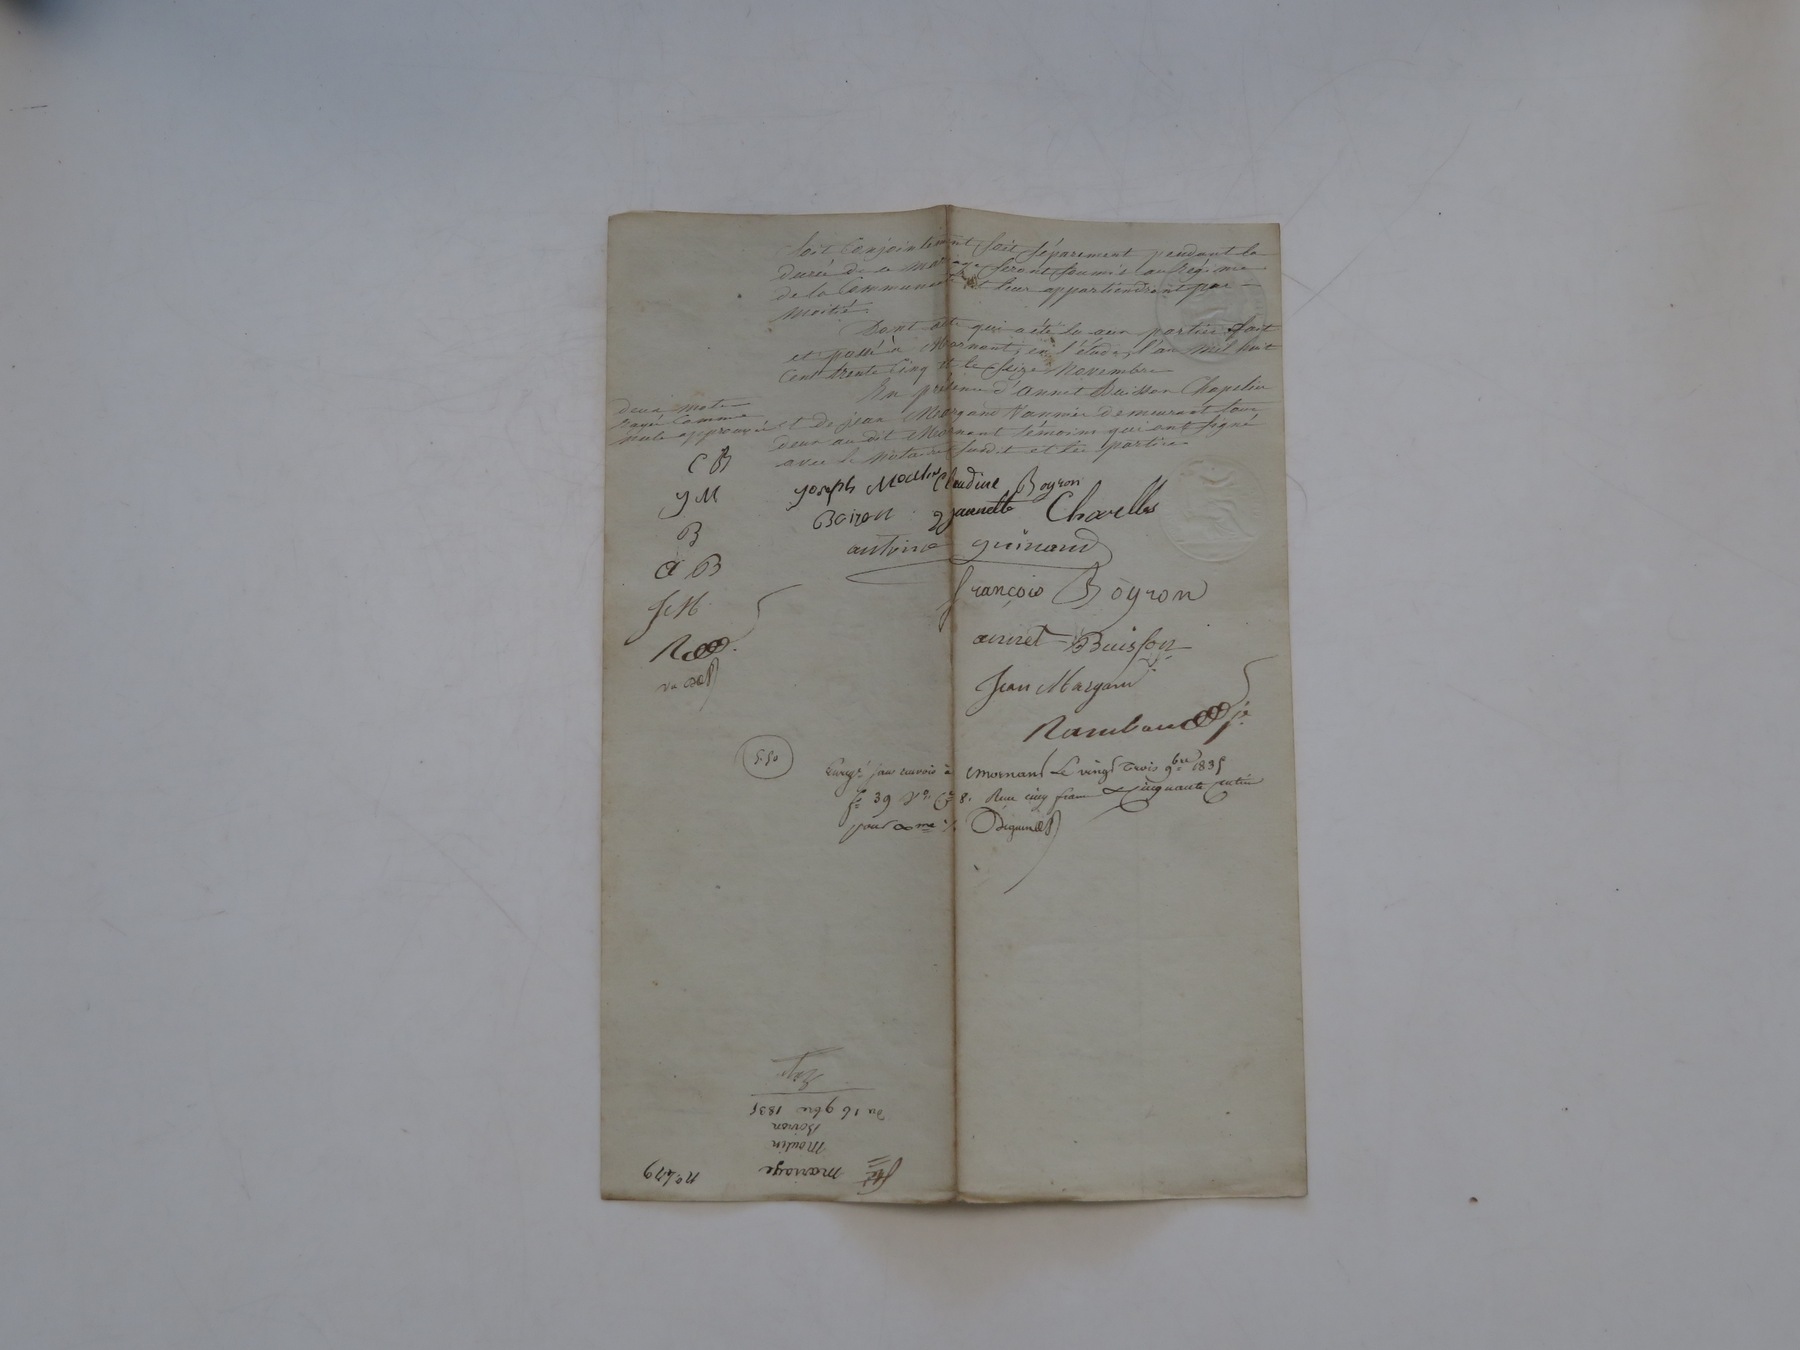 Soit Conjointement soit séparément pendant la
durée de ce mariage seront soumis au Régime
de la Communauté et leur appartiendront par
Moitié.
Dont acte qui a été lu aux parties fait
et passé à Mornant, en l'étude, l'an mil huit
Cent trente Cinq et le seize Novembre
En présence d'Annet Buisson Chapelier
et de jean Margand Vannier demeurant tous
deux au dit Mornant témoins qui ont signé
avec le Notaire susdit et les parties
deux mots
rayés Comme
nuls approuvés
C B
J M
B
A B
J M
R
Vu
Joseph Moulin Claudine Boyron
Boiron Jeannette Charelles
antoine guinand
françois Boyron
annet Buisson
Jean Margand
Rambaud
5.50
Enregé sans renvois à Mornant Le vingt trois 9bre 1835
fo 39 Vo Ce 8. Reçu cinq francs cinquante centimes
pour
No 479
mariage
Moulin
Boiron
du 16 9bre 1835